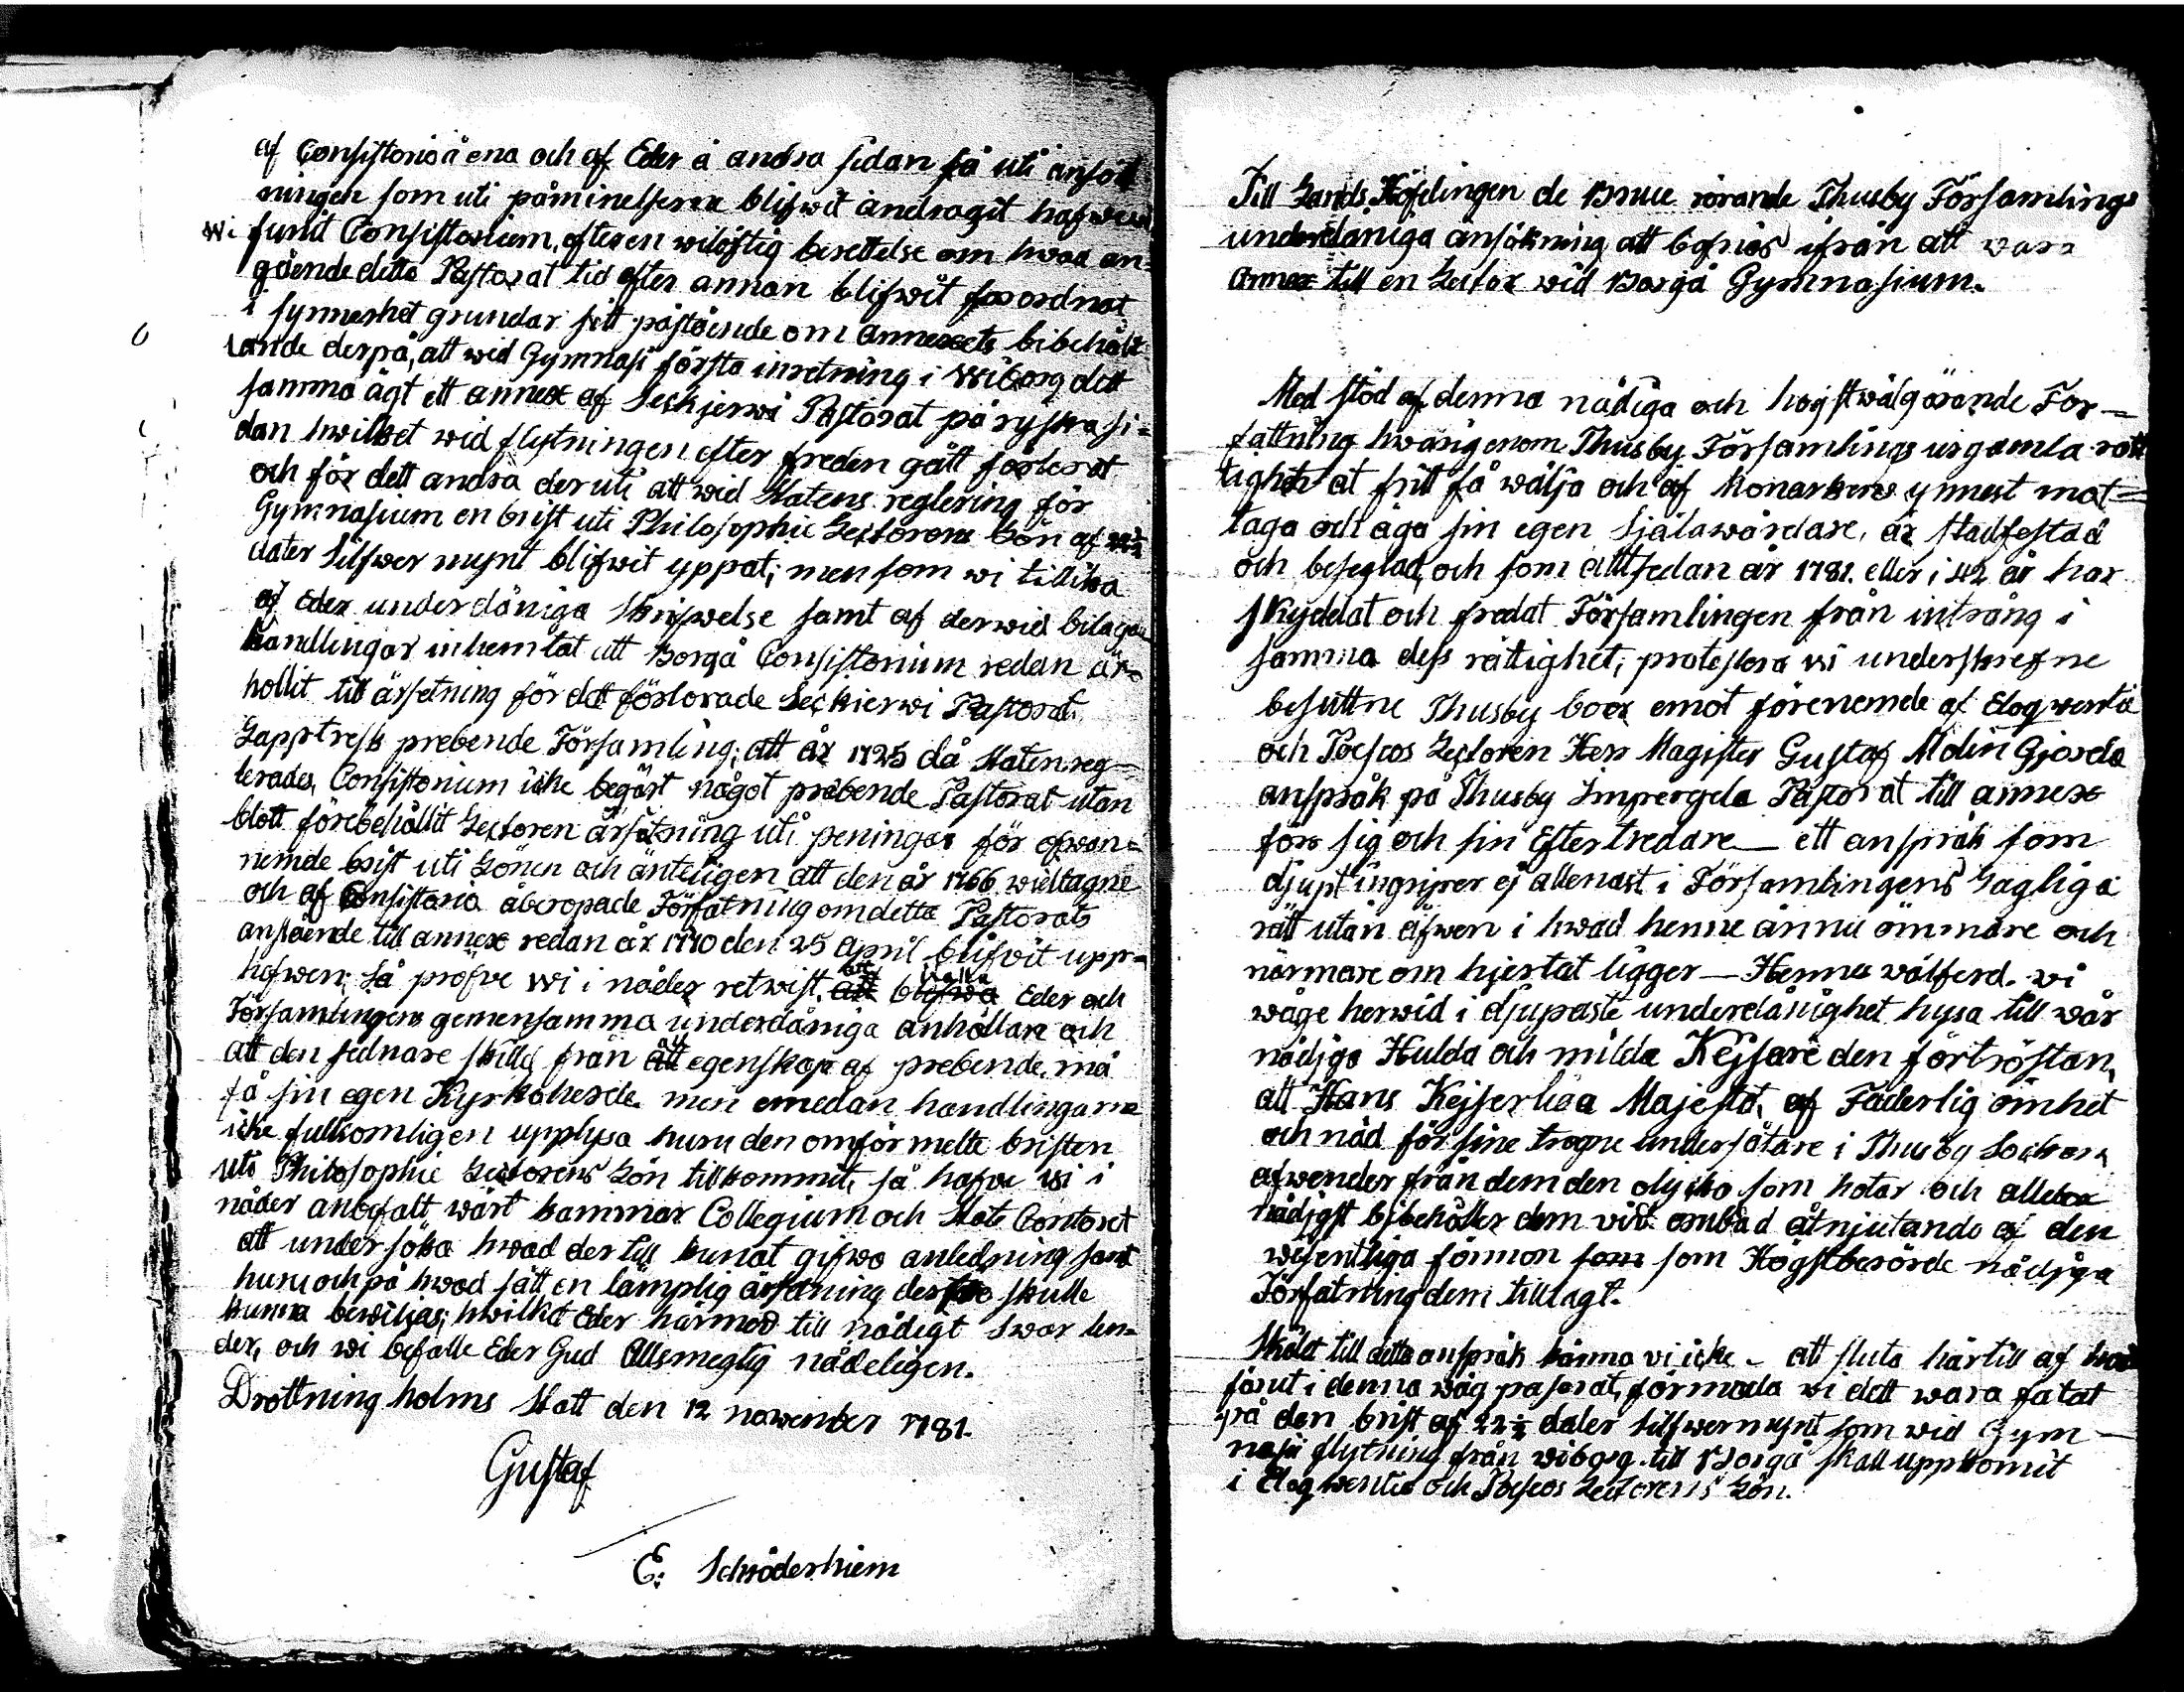 af Consistorio å ena och af Eder å andra sidan så uti ansök
ningen som uti påminelserne blifwit andragit hafwer
wi funit Consistorium, efter en wilöftig berettelse om hwad an=
gående detta Pastorat tid efter annan blifwit förordnat
i synnerhet grundar sitt påstående om annexets bibehål
lande derpå, att wid Gymnasi första inretning i Wiborg dett
samma ägt ett annex af Seskjerwi Pastorat på ryska si=
dan hwilket wid flytningen efter freden gått förlorat
och för dett andra deruti att wid Statens reglering för
Gymnasium en brist uti Philosophie Lectorens Lön af 22½
daler Silfwer mynt blifwit yppat; men som wi tillika
af Eder underdåniga skrifwelse samt af derwid bilagde
handlingar inhemtat att Borgå Consistorium redan är=
hollit till ärsetning för dett förlorade Seskierwi Pastorat
Lapptresk prebende Församling; att år 1725 då Staten reg=
lerades, Consistorium icke begärt något prebende Pastorat utan
blott förebehållit Lectoren ärsätning uti peningar för ofwan=
nemde brist uti Lönen och änteligen att den år 1766 widtagne
och af Consistorio åberopade Författning om detta Pastorats
anslående till annex redan år 1770 den 25 April blifvit upp=
hefwen; så pröfve wi i nåder retwist, Eder och
Församlingens gemensamma underdåniga anhållan och
att den sednare skilld från all egenskap af prebende, må
få sin egen Kyrkoherde. men emedan handlingarne
icke fullkomligen upplysa huru den omförmelte bristen
uti Philosophie Lectorens Lön tillkommit, så hafve wi i
nåder anbefalt wårt kammar Collegium och Stats Contoret
att undersöka hwad der till kunat gifwa anledning samt
huru och på hwad sätt en lämplig ärsetning derföre skulle
kunna bewiljas; hwilket Eder härmed till nådigt swar len=
der, och wi befalle Eder Gud Allsmegtig nådeligen.
Drottningholms Slott den 12 november 1781.
Gustaf
E: Schröderhiem
Till Lands Höfdingen de Bruce rörande Thusby Församlings
underdåniga ansökning att befrias ifrån att wara
annex till en Lector wid Borgå Gymnasium.
Med stöd af denna nådiga och högstwälgörande För=
fattning hwarigenom Thusby Församlings urgamla rätt
tighet at fritt få wälja och af Monarkens ynnest mot=
taga och äga sin egen Själawårdare, är stadfestad
och beseglad, och som alltsedan år 1781. eller i 42 år har
skyddat och fredat Församlingen från intrång i
samma dess rättighet; protestera wi underskrefne
besuttne Thusby boer emot förenemde af Eloqwentiæ
och Poeseos Lectoren Herr Magister Gustaf Molin Gjorda
anspråk på Thusby Imperegela Pastorat till annex
för sig och sin Eftertredare — ett anspråk som
djupt ingriper ej allenast i Församlingens Lagliga
rätt utan äfwen i hwad henne ännu ömmare och
närmare om hjertat ligger — Hennes wälferd. wi
wåge herwid i djupaste underdånighet hysa till wår
nådiga Hulda och milda Kejsare den förtröstan,
att Hans Kejserliga Majestet, af Faderlig ömhet
och nåd för sine trogne undersåtare i Thusby Socken
afwender från dem den olycka som hotar och
nådigst bibehåller dem vid orubbad åtnjutande af den
wesentliga förmon som som Högstberörde nådiga
Författning dem tillagt.
Skälet till detta anspråk känna vi icke — att sluta härtill af hwad
förut i denna wäg paserat, förmoda wi dett wara fatat
på den brist af 22½ daler silfwermynt som wid Gym=
nasii flytning från wiborg till Borgå skall uppkomit
i Eloqwentiæ och Poeseos Lectorens Lön.